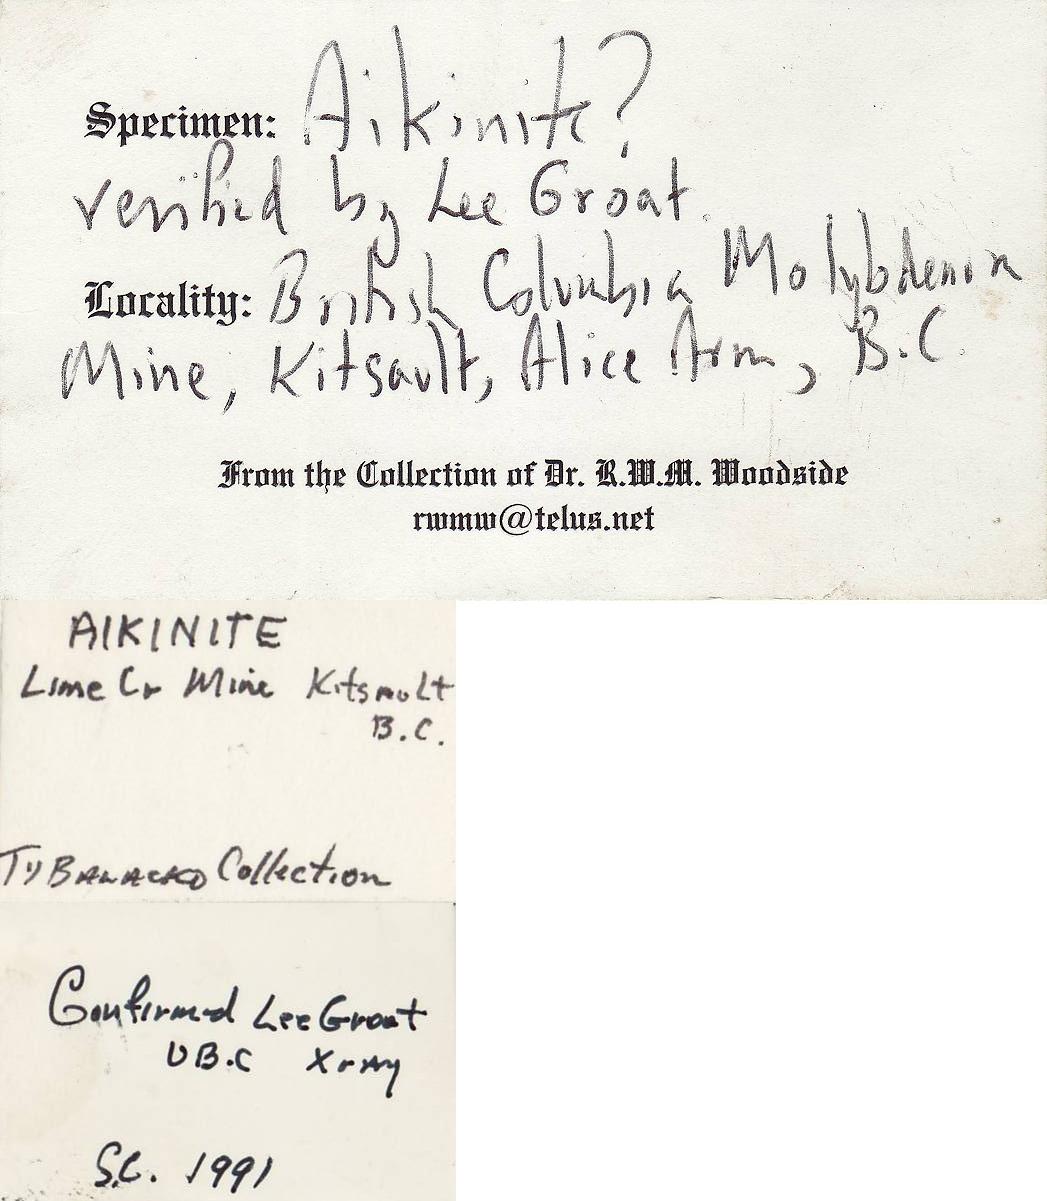 Specimen: Aikinite?
verified by Lee Groat.
Locality: British Columbia Molybdenum
Mine, Kitsault, Alice Arm, B.C.
From the Collection of Dr. R.W.M. Woodside
rwmw@telus.net
AIKINITE
Lime Cr Mine Kitsault
B.C.
Ty Collection
Confirmed Lee Groat
UB.C Xray
S.C. 1991